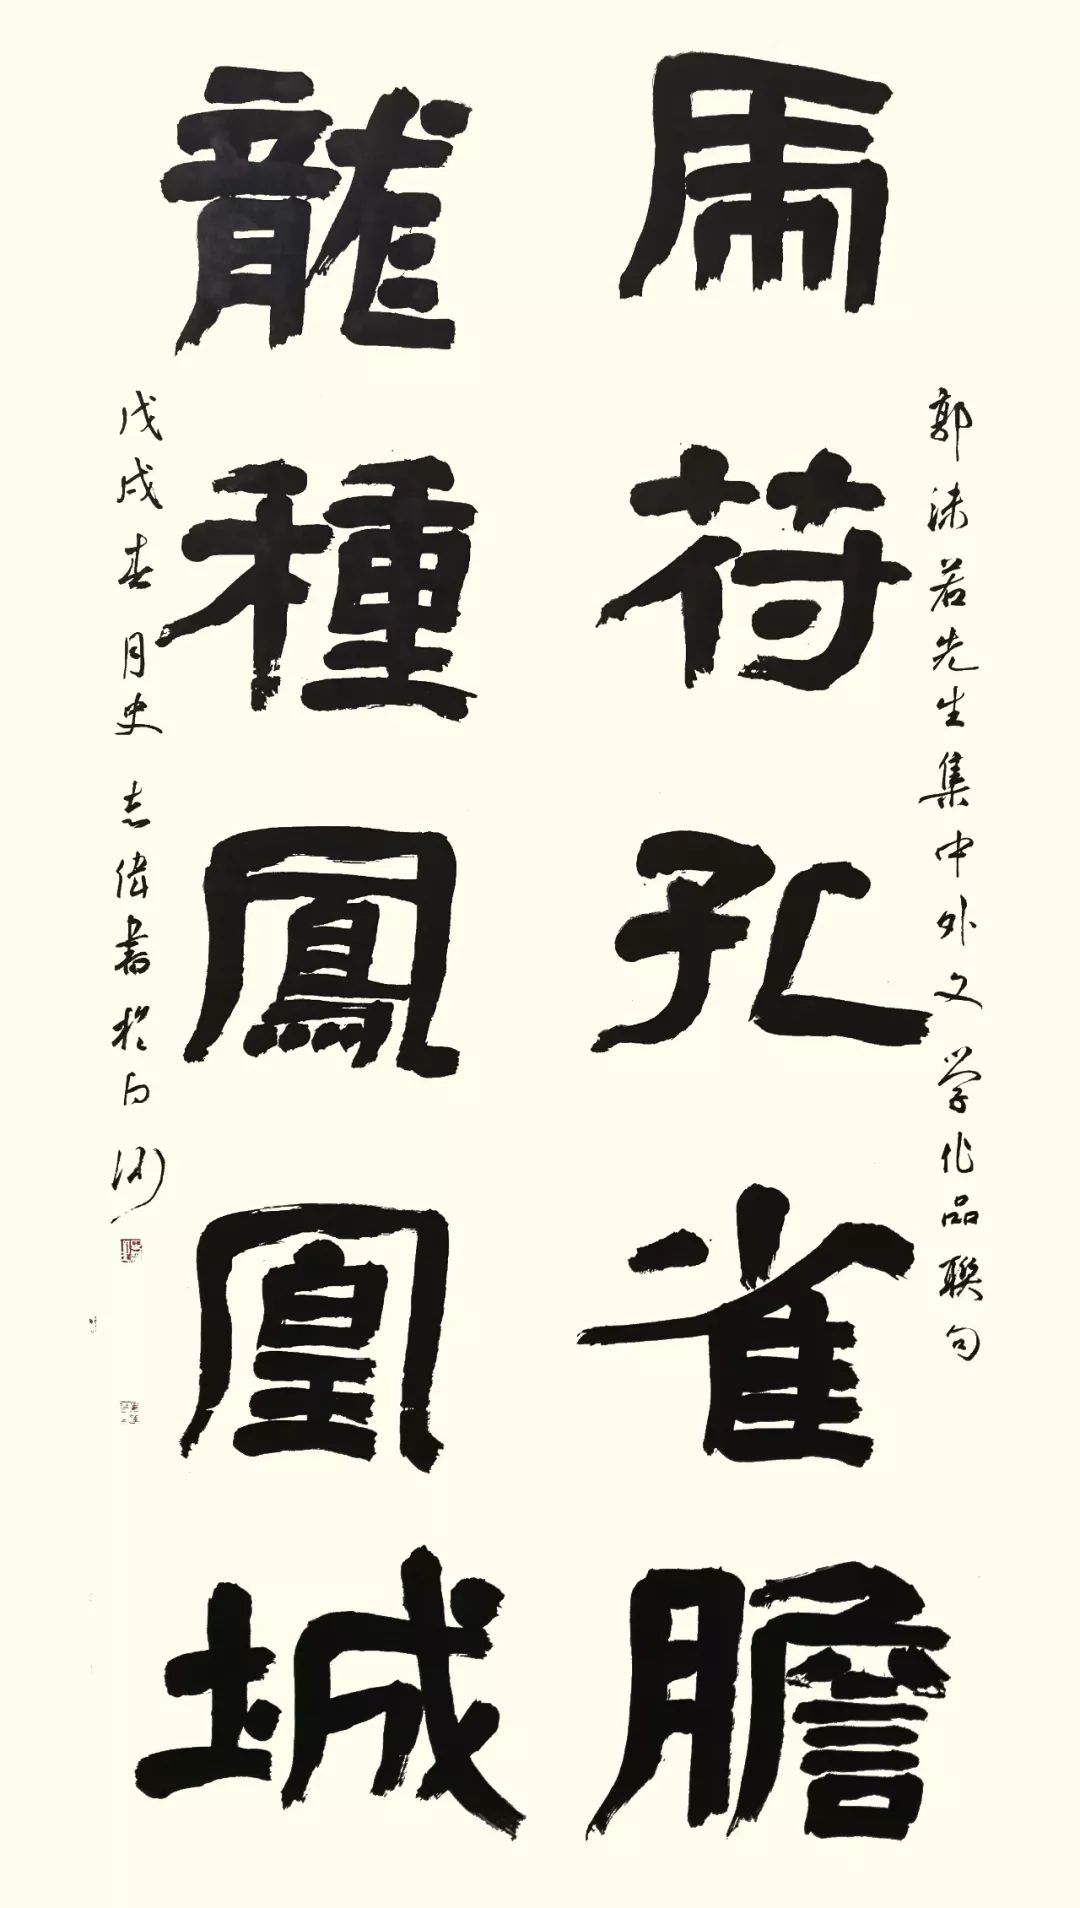 郭沫若先生集中外文学作品聯句
虎符孔雀膽
龍種鳳凰城
戊戌春月史志偉書於白